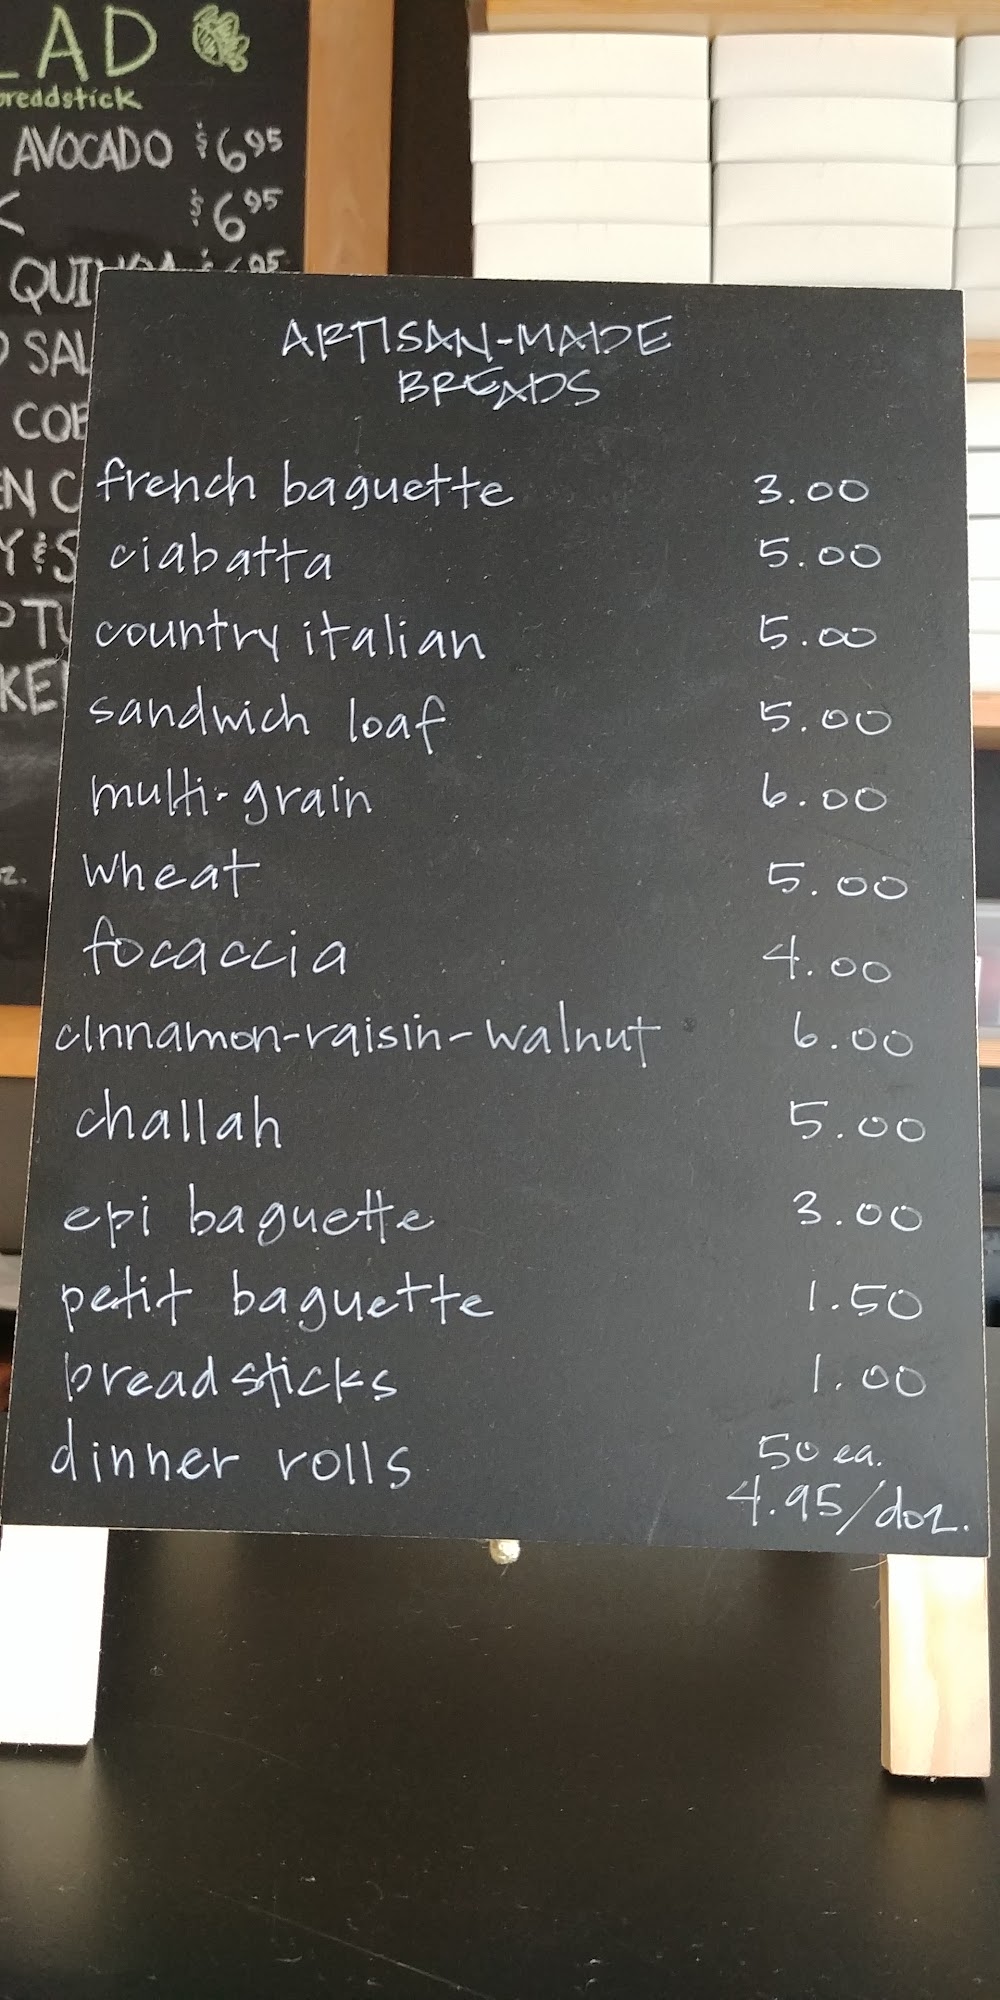 AD
breadstick
AVOCADO $6.95
$6.95
ARTISAN-MADE
BREADS
french baguette 3.00
ciabatta 5.00
country italian 5.00
sandwich loaf 5.00
multi-grain 6.00
wheat 5.00
focaccia 4.00
cinnamon-raisin-walnut 6.00
challah 5.00
epi baguette 3.00
petit baguette 1.50
breadsticks 1.00
dinner rolls 50 ea.
4.95/doz.